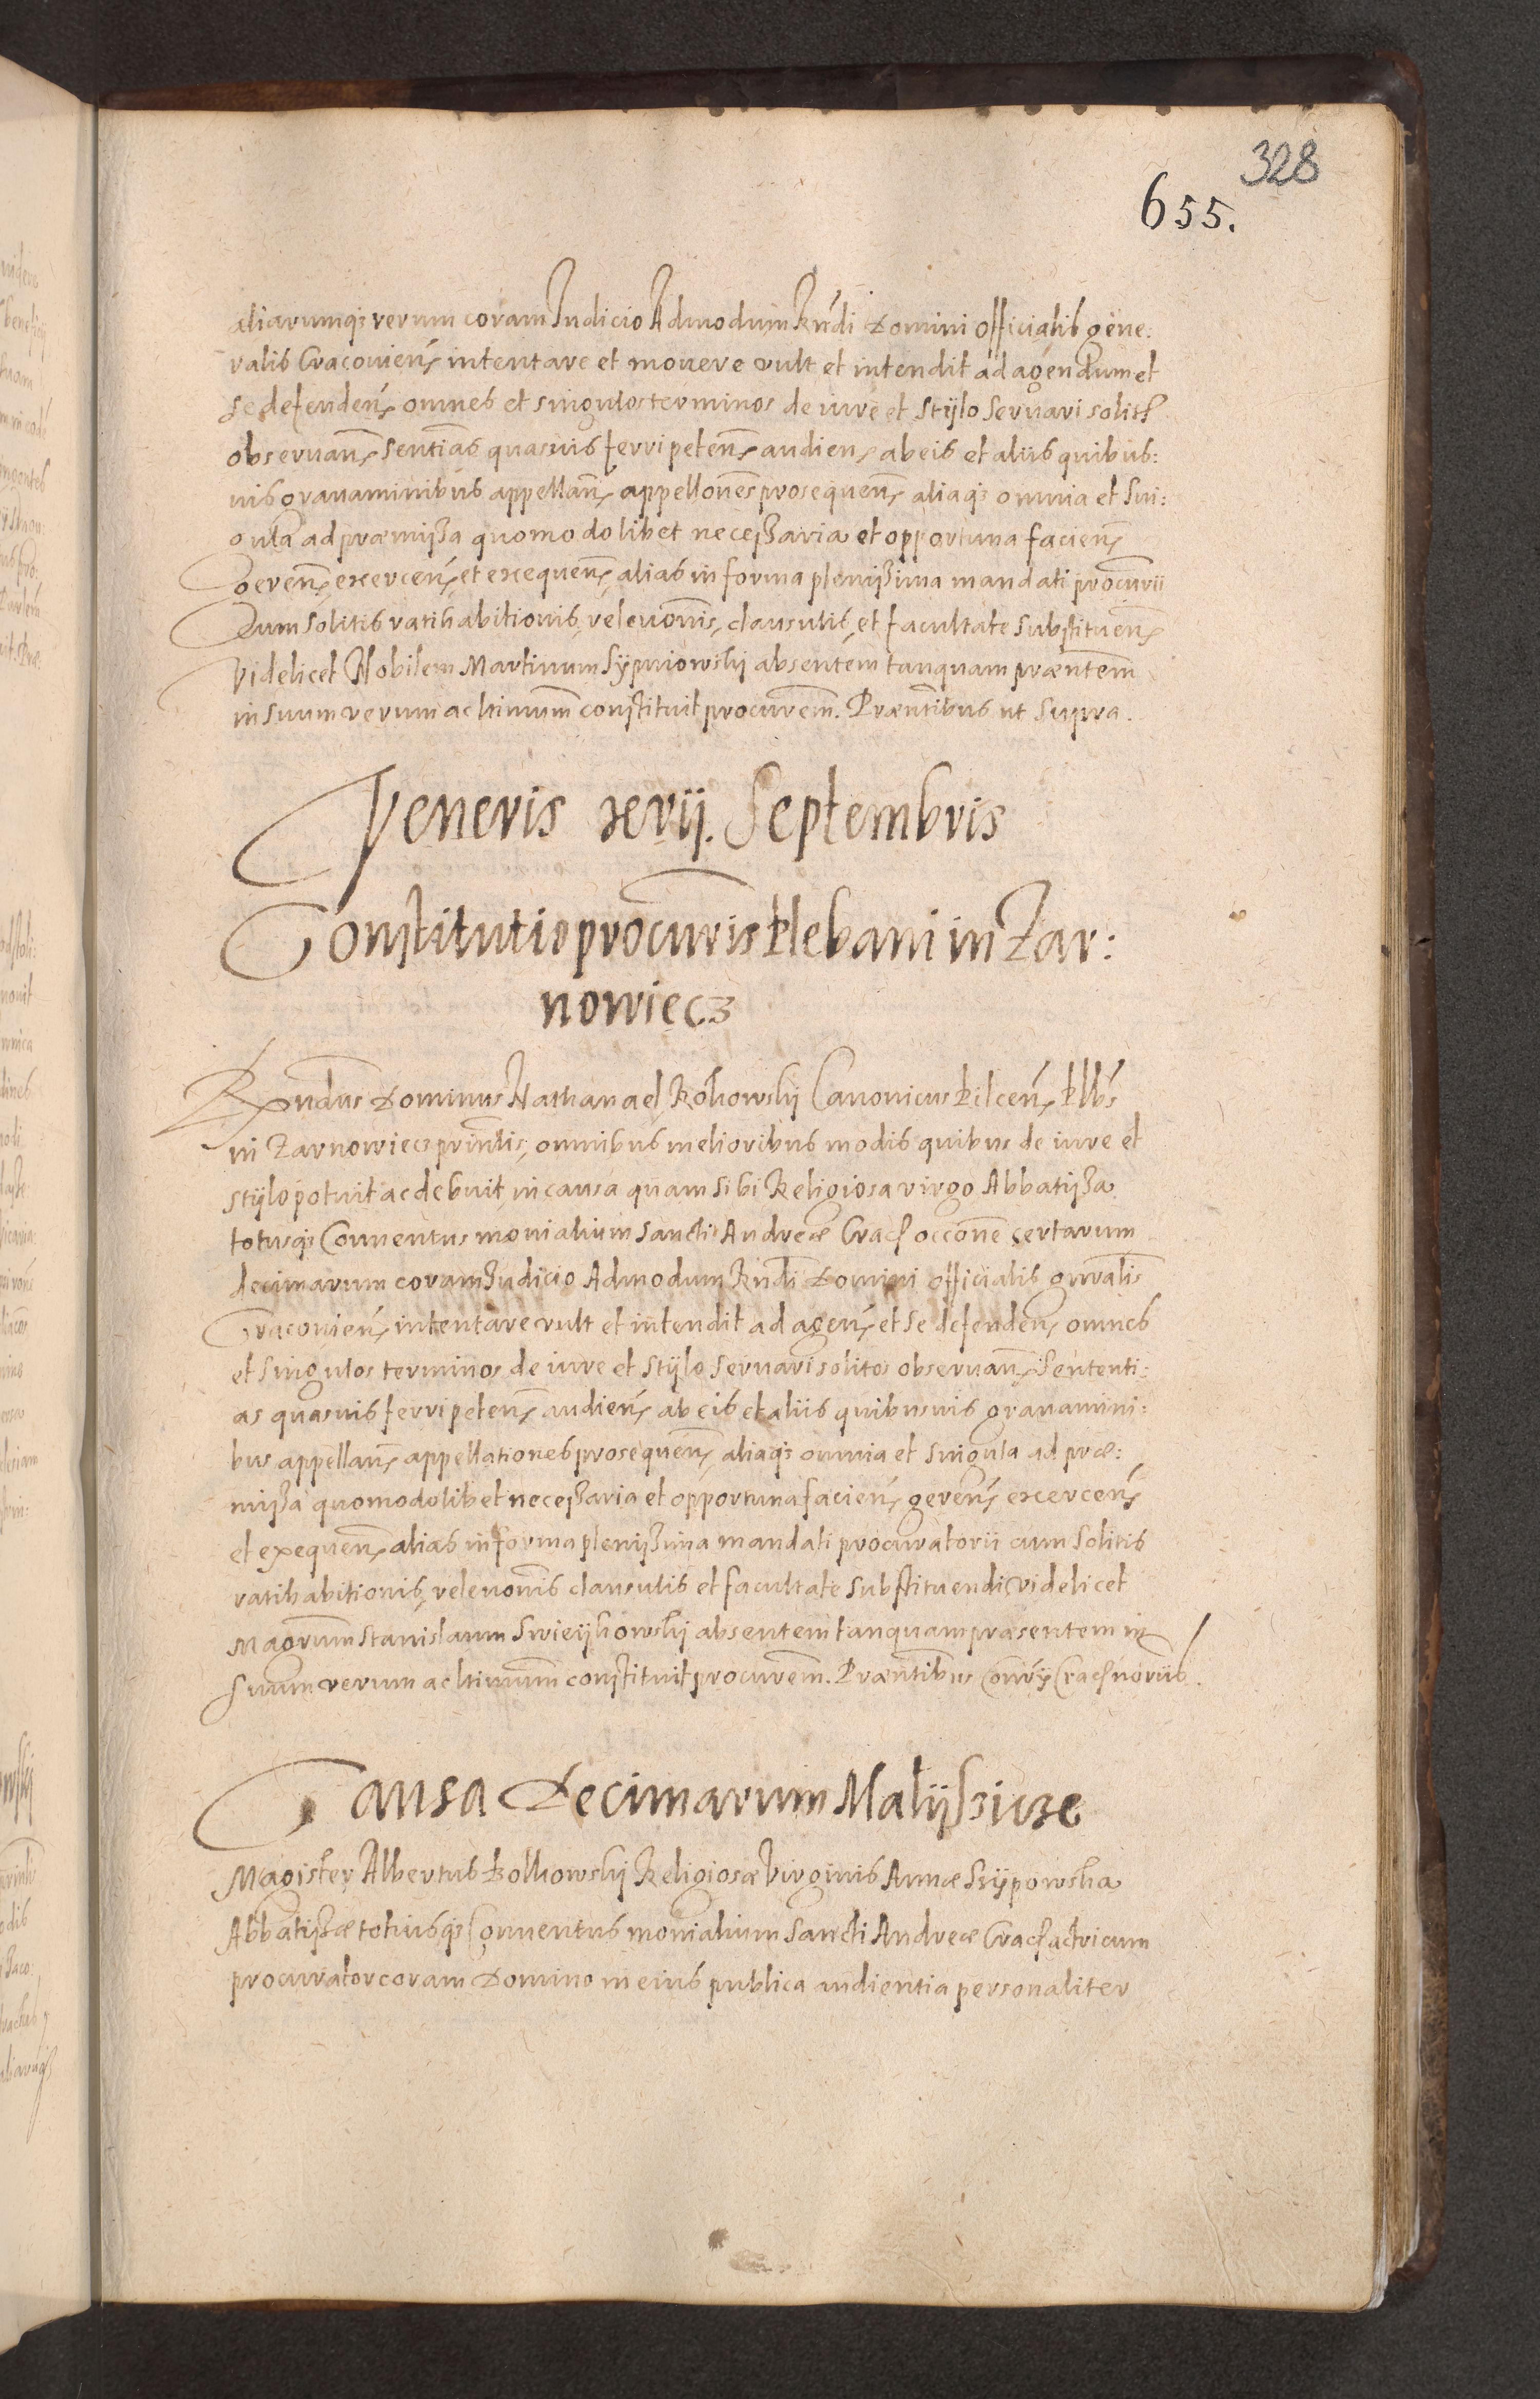 328
655.
aliarumq3 rerum coram Iudicio Admodum Rñdi Domini Officialis gene:
ralis Cracovieñ intentare et mouere vult et intendit ad agendum et
se defendeñ omnes et singulos terminos de iure et stÿlo seruari solitos
obseruañ sentias quasuis ferri peteñ audieñ ab eis et aliis quibus:
uis grauaminibus appellañ appellones prosequeñ aliaq3 omnia et sin:
gula ad præmißa quomodolibet neceßaria et opportuna facieñ
gereñ exerceñ et exequeñ alias in forma plenißima mandati procurii
Cum solitis ratihabitionis, releuonis, clausulis, et facultate substitueñ
Videlicet Nobilem Martinum Sÿpniowskÿ absentem tanquam præntem
in suum verum ac ltimum constituit procurem. Præntibus ut supra.
Veneris xvij. Septembris
Constitutio procuris Plebani in Zar:
nowiecz
Rñdus Dominus Nathanael Kokowskÿ Canonicus Kilceñ Plbs
in Zarnowiecz printlis, omnibus melioribus modis quibus de iure et
stÿlo potuit ac debuit, in causa quam sibi Religiosa virgo Abbatißa
totusq3 Conuentus monialium Sancti Andreæ Crac occone certarum
decimarum coram Iudicio Admodum Rñdi Domini Officialis gnralis
Cracovieñ intentare vult et intendit ad ageñ et se defendeñ omnes
et singulos terminos de iure et stÿlo seruari solitos obseruañ Sententi:
as quasuis ferri peteñ audieñ ab eis et aliis quibusuis grauamini:
bus appellañ appellationes prosequeñ aliaq3 omnia et singula ad præ:
mißa quomodolibet neceßaria et opportuna facieñ gereñ exerceñ
et exequeñ alias in forma plenißima mandati procuratorii cum solitis
ratihabitionis, releuonis clausulis et facultate substituendi videlicet
Magrum Stanislaum Swieÿkowskÿ absentem tanquam præsentem in
Suum verum ac ltimum constituit procurem. Præntibus Conrÿ Crac noriis.
Causa Decimarum Malÿszicze
Magister Albertus Kolkowskÿ Religiosæ Virginis Annæ Srÿpowska
Abbatißæ totiusq3 Conuentus monialium Sancti Andreæ Crac actricum
procurator coram Domino in eius publica audientia personaliter